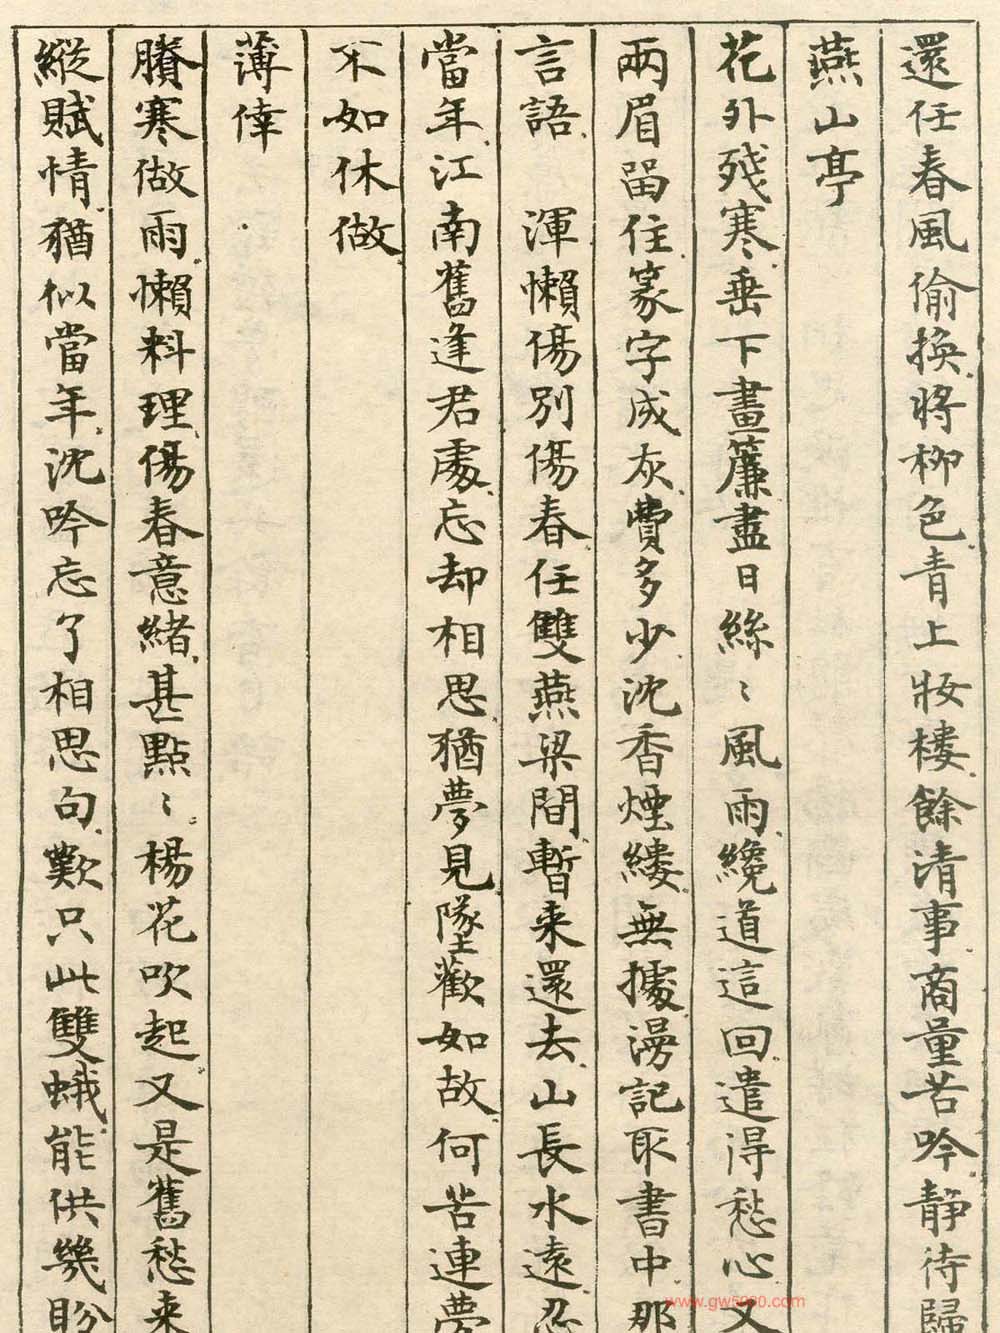 還任春風偷換將柳色青上妝樓餘清事商量苦吟靜待歸
燕山亭
花外殘寒垂下畫簾盡日絲〻風雨纔道這回遣得愁心又
兩眉留住篆字成灰費多少沈香煙縷無據漫記取書中那
言語 渾懶傷別傷春任雙燕梁間暫来還去山長水遠忍
當年江南舊逢君處忘却相思猶夢見墜歡如故何苦連夢
不如休做
薄倖
賸寒做雨懶料理傷春意緒甚點〻楊花吹起又是舊愁来
縱賦情猶似當年沈吟忘了相思句歎只此雙蛾能供幾盼
www.gw5000.com